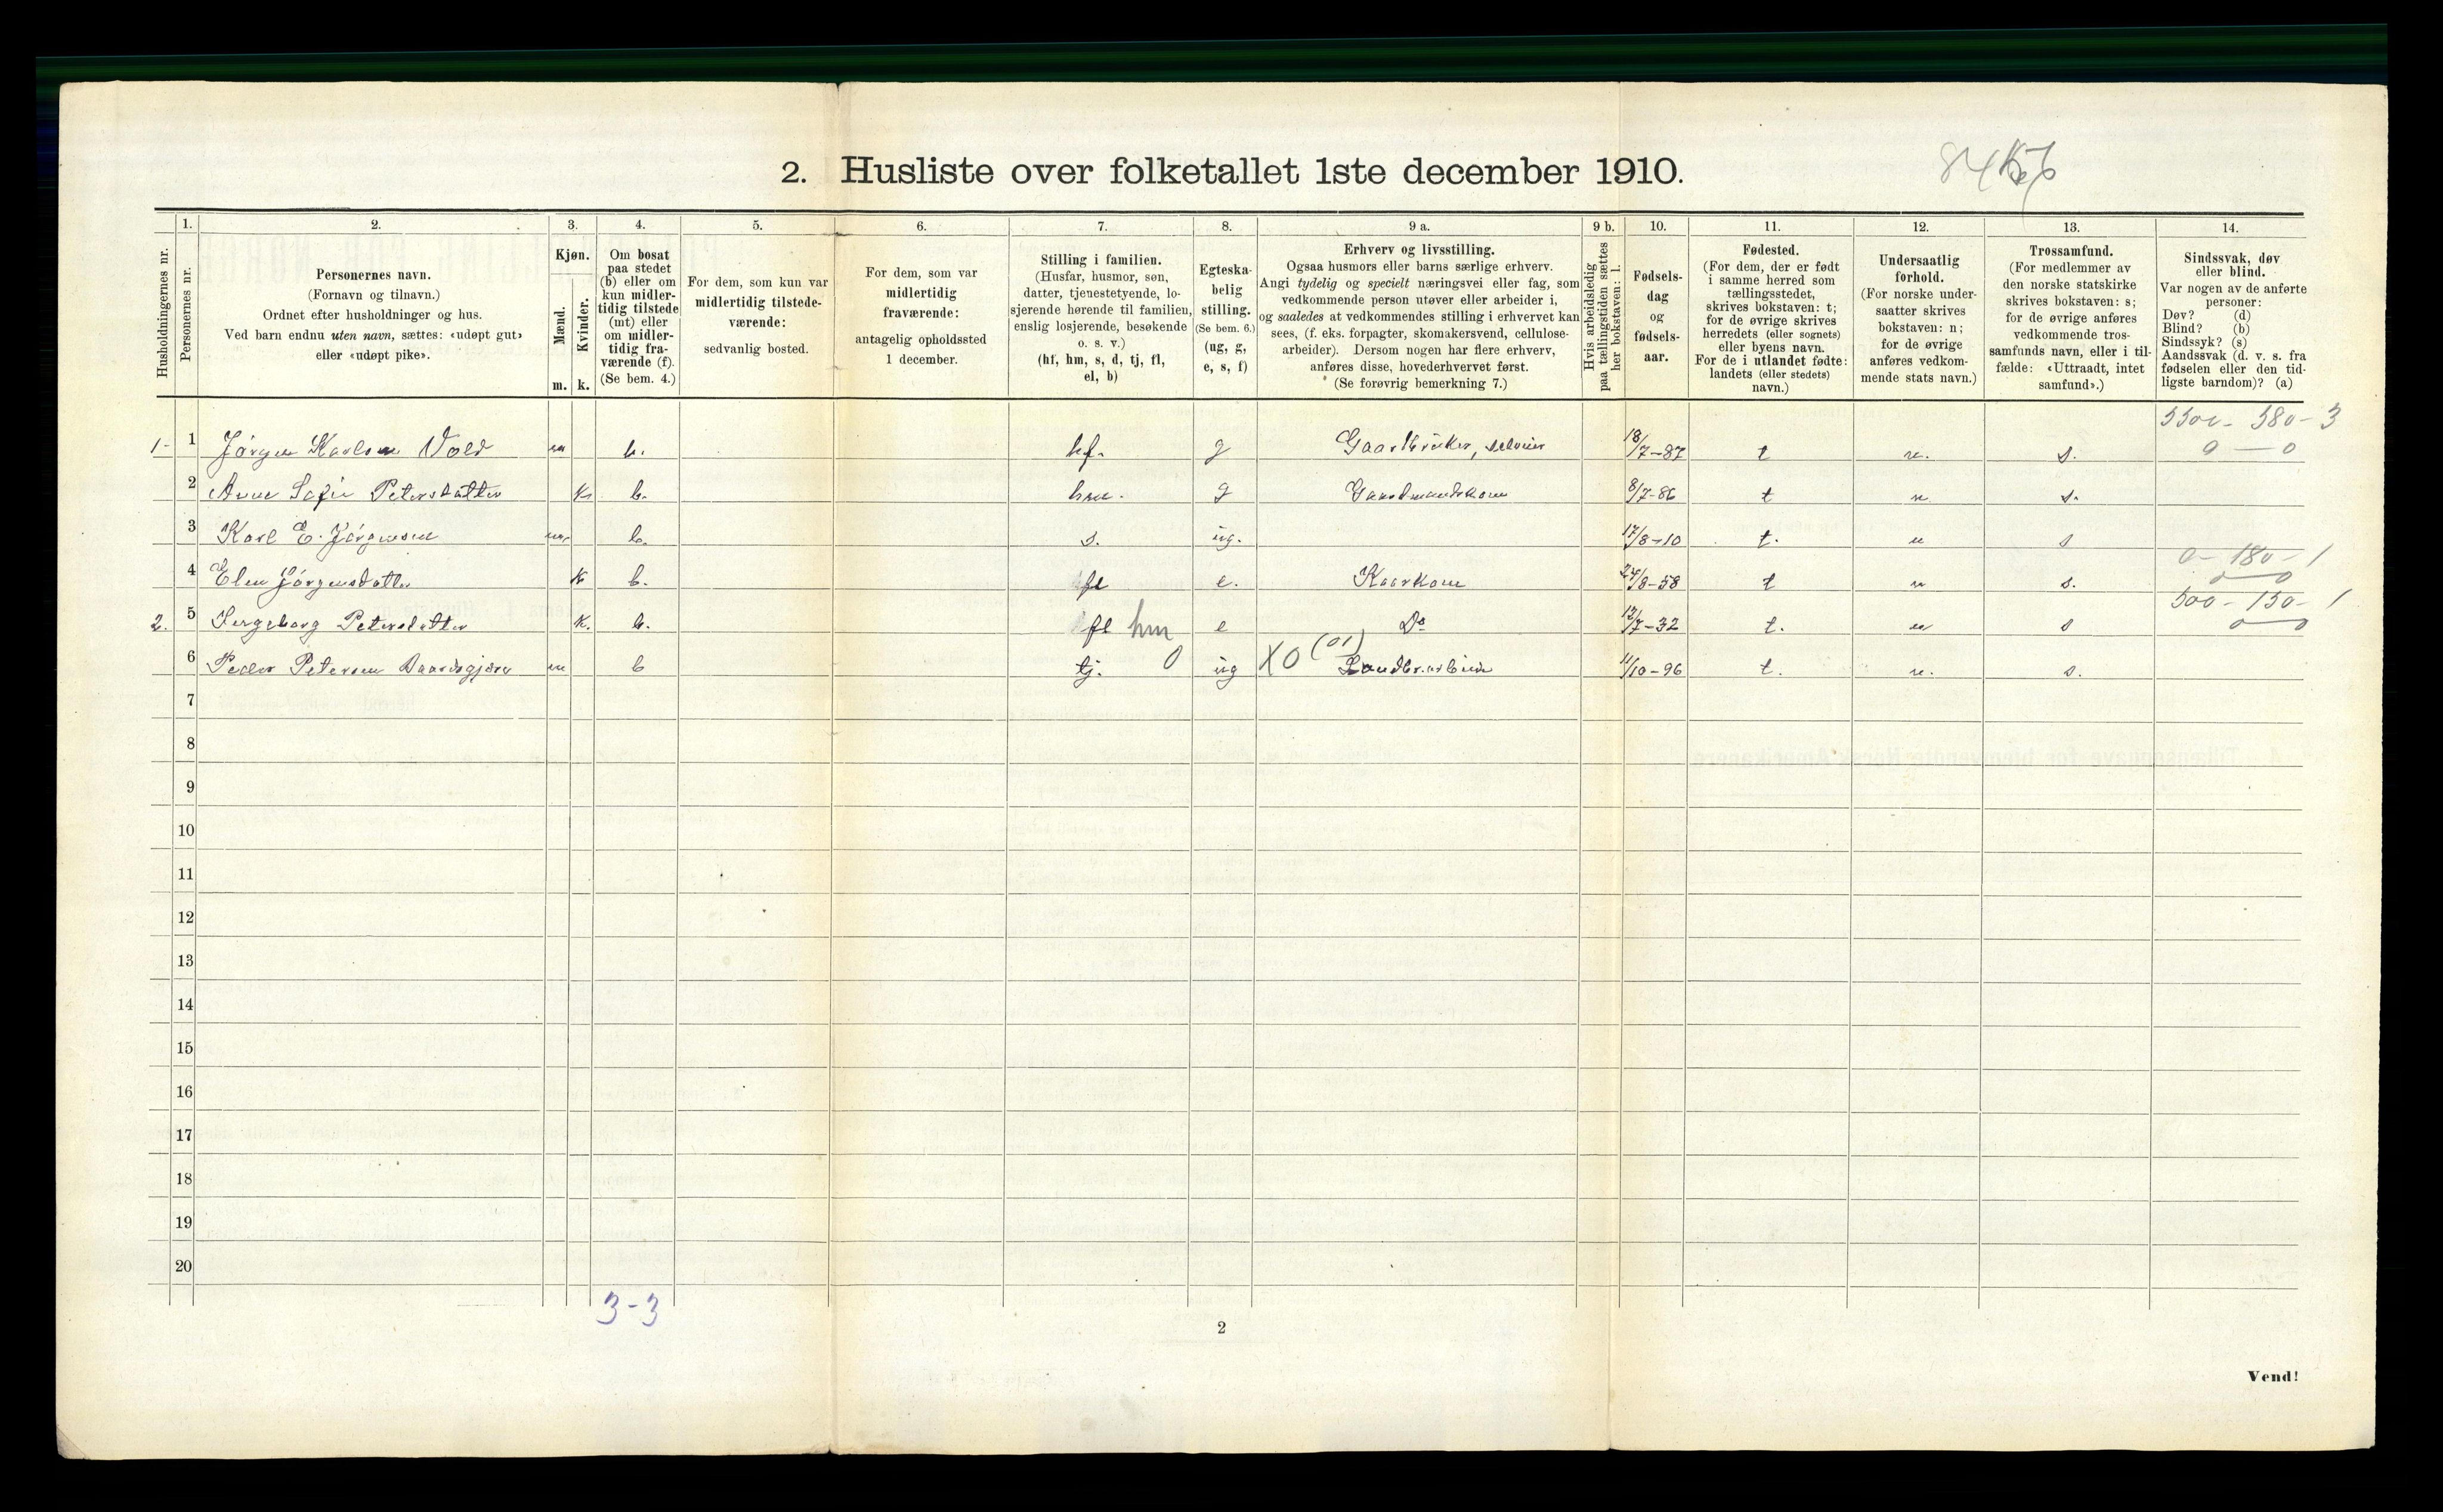 2. Husliste over folketallet 1ste december 1910.
84
1. 2. 3. 4. 5. 6. 7. 8. 9 a. 9 b. 10. 11. 12. 13. 14.
Husholdningernes nr.
Personernes nr.
Personernes navn.
(Fornavn og tilnavn.)
Ordnet efter husholdninger og hus.
Ved barn endnu uten navn, sættes: «udøpt gut»
eller «udøpt pike».
Kjøn.
Mænd.
Kvinder.
m. k.
Om bosat
paa stedet
(b) eller om
kun midler-
tidig tilstede
(mt) eller
om midler-
tidig fra-
værende (f).
(Se bem. 4.)
For dem, som kun var
midlertidig tilstede-
værende:
sedvanlig bosted.
For dem, som var
midlertidig
fraværende:
antagelig opholdssted
1 december.
Stilling i familien.
(Husfar, husmor, søn,
datter, tjenestetyende, lo-
sjerende hørende til familien,
enslig losjerende, besøkende
o. s. v.)
(hf, hm, s, d, tj, fl,
el, b)
Egteska-
belig
stilling.
(Se bem. 6.)
(ug, g,
e, s, f)
Erhverv og livsstilling.
Ogsaa husmors eller barns særlige erhverv.
Angi tydelig og specielt næringsvei eller fag, som
vedkommende person utøver eller arbeider i,
og saaledes at vedkommendes stilling i erhvervet kan
sees, (f. eks. forpagter, skomakersvend, cellulose-
arbeider). Dersom nogen har flere erhverv,
anføres disse, hovederhvervet først.
(Se forøvrig bemerkning 7.)
Hvis arbeidsledig
paa tællingstiden sættes
her bokstaven: l.
Fødsels-
dag
og
fødsels-
aar.
Fødested.
(For dem, der er født
i samme herred som
tællingsstedet,
skrives bokstaven: t;
for de øvrige skrives
herredets (eller sognets)
eller byens navn.
For de i utlandet fødte:
landets (eller stedets)
navn.)
Undersaatlig
forhold.
(For norske under-
saatter skrives
bokstaven: n;
for de øvrige
anføres vedkom-
mende stats navn.)
Trossamfund.
(For medlemmer av
den norske statskirke
skrives bokstaven: s;
for de øvrige anføres
vedkommende tros-
samfunds navn, eller i til-
fælde: «Uttraadt, intet
samfund».)
Sindssvak, døv
eller blind.
Var nogen av de anførte
personer:
Døv? (d)
Blind? (b)
Sindssyk? (s)
Aandssvak (d. v. s. fra
fødselen eller den tid-
ligste barndom)? (a)
5500 - 380 - 3
1- 1 Jørgen Karlsen Vold m b. hf. g Gaardbruker, selveier 18/7-87 t n. s. 0 — 0
2 Anne Sofie Petersdatter k b. hm. g Gaardmandskone 8/7-86 t n s.
3 Karl E. Jørgensen m. b. s. ug. 17/8-10 t. n s
0 - 180 - 1
4 Elen Jørgensdatter k b. fl e. Kaarkone 24/8-58 t n s. 0 — 0
500 - 150 - 1
2. 5 Ingeborg Petersdatter k. b. fl hm e Do 12/7-32 t. n s 0 — 0
6 Peder Petersen m b tj. 0 ug X0 (01) Landbr.arbeider 11/10-96 t. n. s.
7
8
9
10
11
12
13
14
15
16
17
18
19
20
3-3
2
Vend!